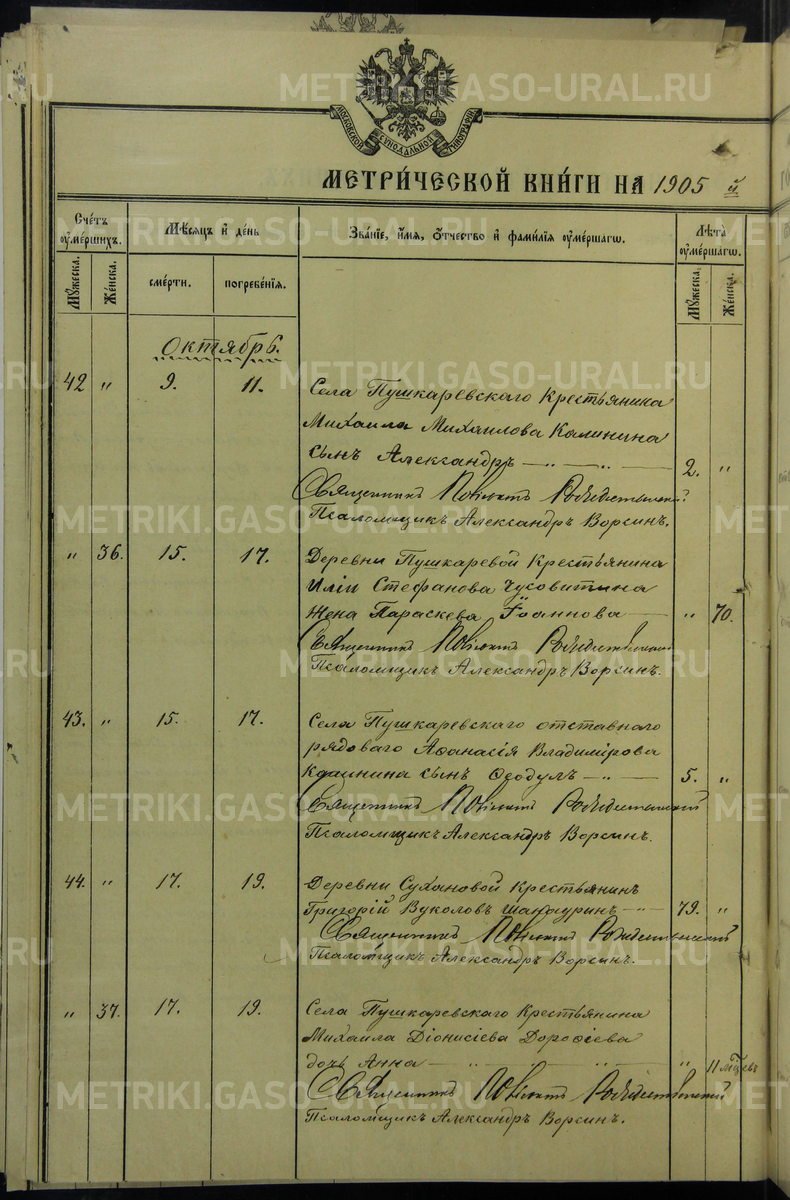 МОСКОВСКОЙ СѴНОДАЛЬНОЙ ТИПОГРАФІИ
МЕТРИ́ЧЕСКОЙ КНИ́ГИ НА 1905 й.
Сче́тъ ᲂуме́ршихъ.
Мѣ́сяцъ и де́нь
Зва́ніе, и́мя, ѻ҆́тчество и фами́лія ᲂуме́ршагѡ.
Лѣ́та ᲂуме́ршагѡ.
Мꙋ́жеска.
Же́нска.
сме́рти.
погребе́нія.
Мꙋ́жеска.
Же́нска.
Октябрь.
42 " 9. 11. Села Пушкаревскаго Крестьянина
Михаила Михаилова Калинина
сынъ Александръ — " — " — 2. "
Священникъ Рождественскій
Псаломщикъ Александръ Ворсинъ.
" 36. 15. 17. Деревни Пушкаревой Крестьянина
Иліи Стефанова Чусовитина
жена Параскева Іоаннова — " 70.
Священникъ Рождественскій
Псаломщикъ Александръ Ворсинъ.
43. " 15. 17. Села Пушкаревскаго отставнаго
рядоваго Аѳанасія Владимірова
Калинина сынъ Ѳеодулъ — " — 5. "
Священникъ Рождественскій
Псаломщикъ Александръ Ворсинъ.
44. " 17. 19. Деревни Сухановой Крестьянинъ
Григорій Вуколовъ — " — 79. "
Священникъ Рождественскій
Псаломщикъ Александръ Ворсинъ.
" 37. 17. 19. Села Пушкаревскаго Крестьянина
Михаила Діонисіева Дороѳеева
дочь Анна — " " " " 11 мцевъ
Священникъ Рождественскій
Псаломщикъ Александръ Ворсинъ.
METRIKI.GASO-URAL.RU